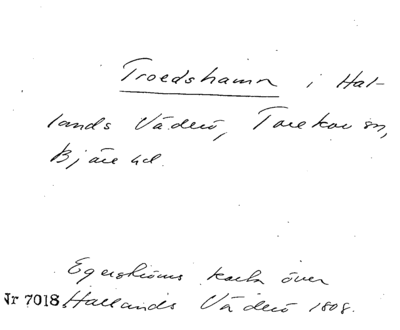 Troedshamn i Hal-
lands Väderö, Torekov sn,
Bjäre hd.
Egerströms karta över
Nr 7018 Hallands Väderö 1808.